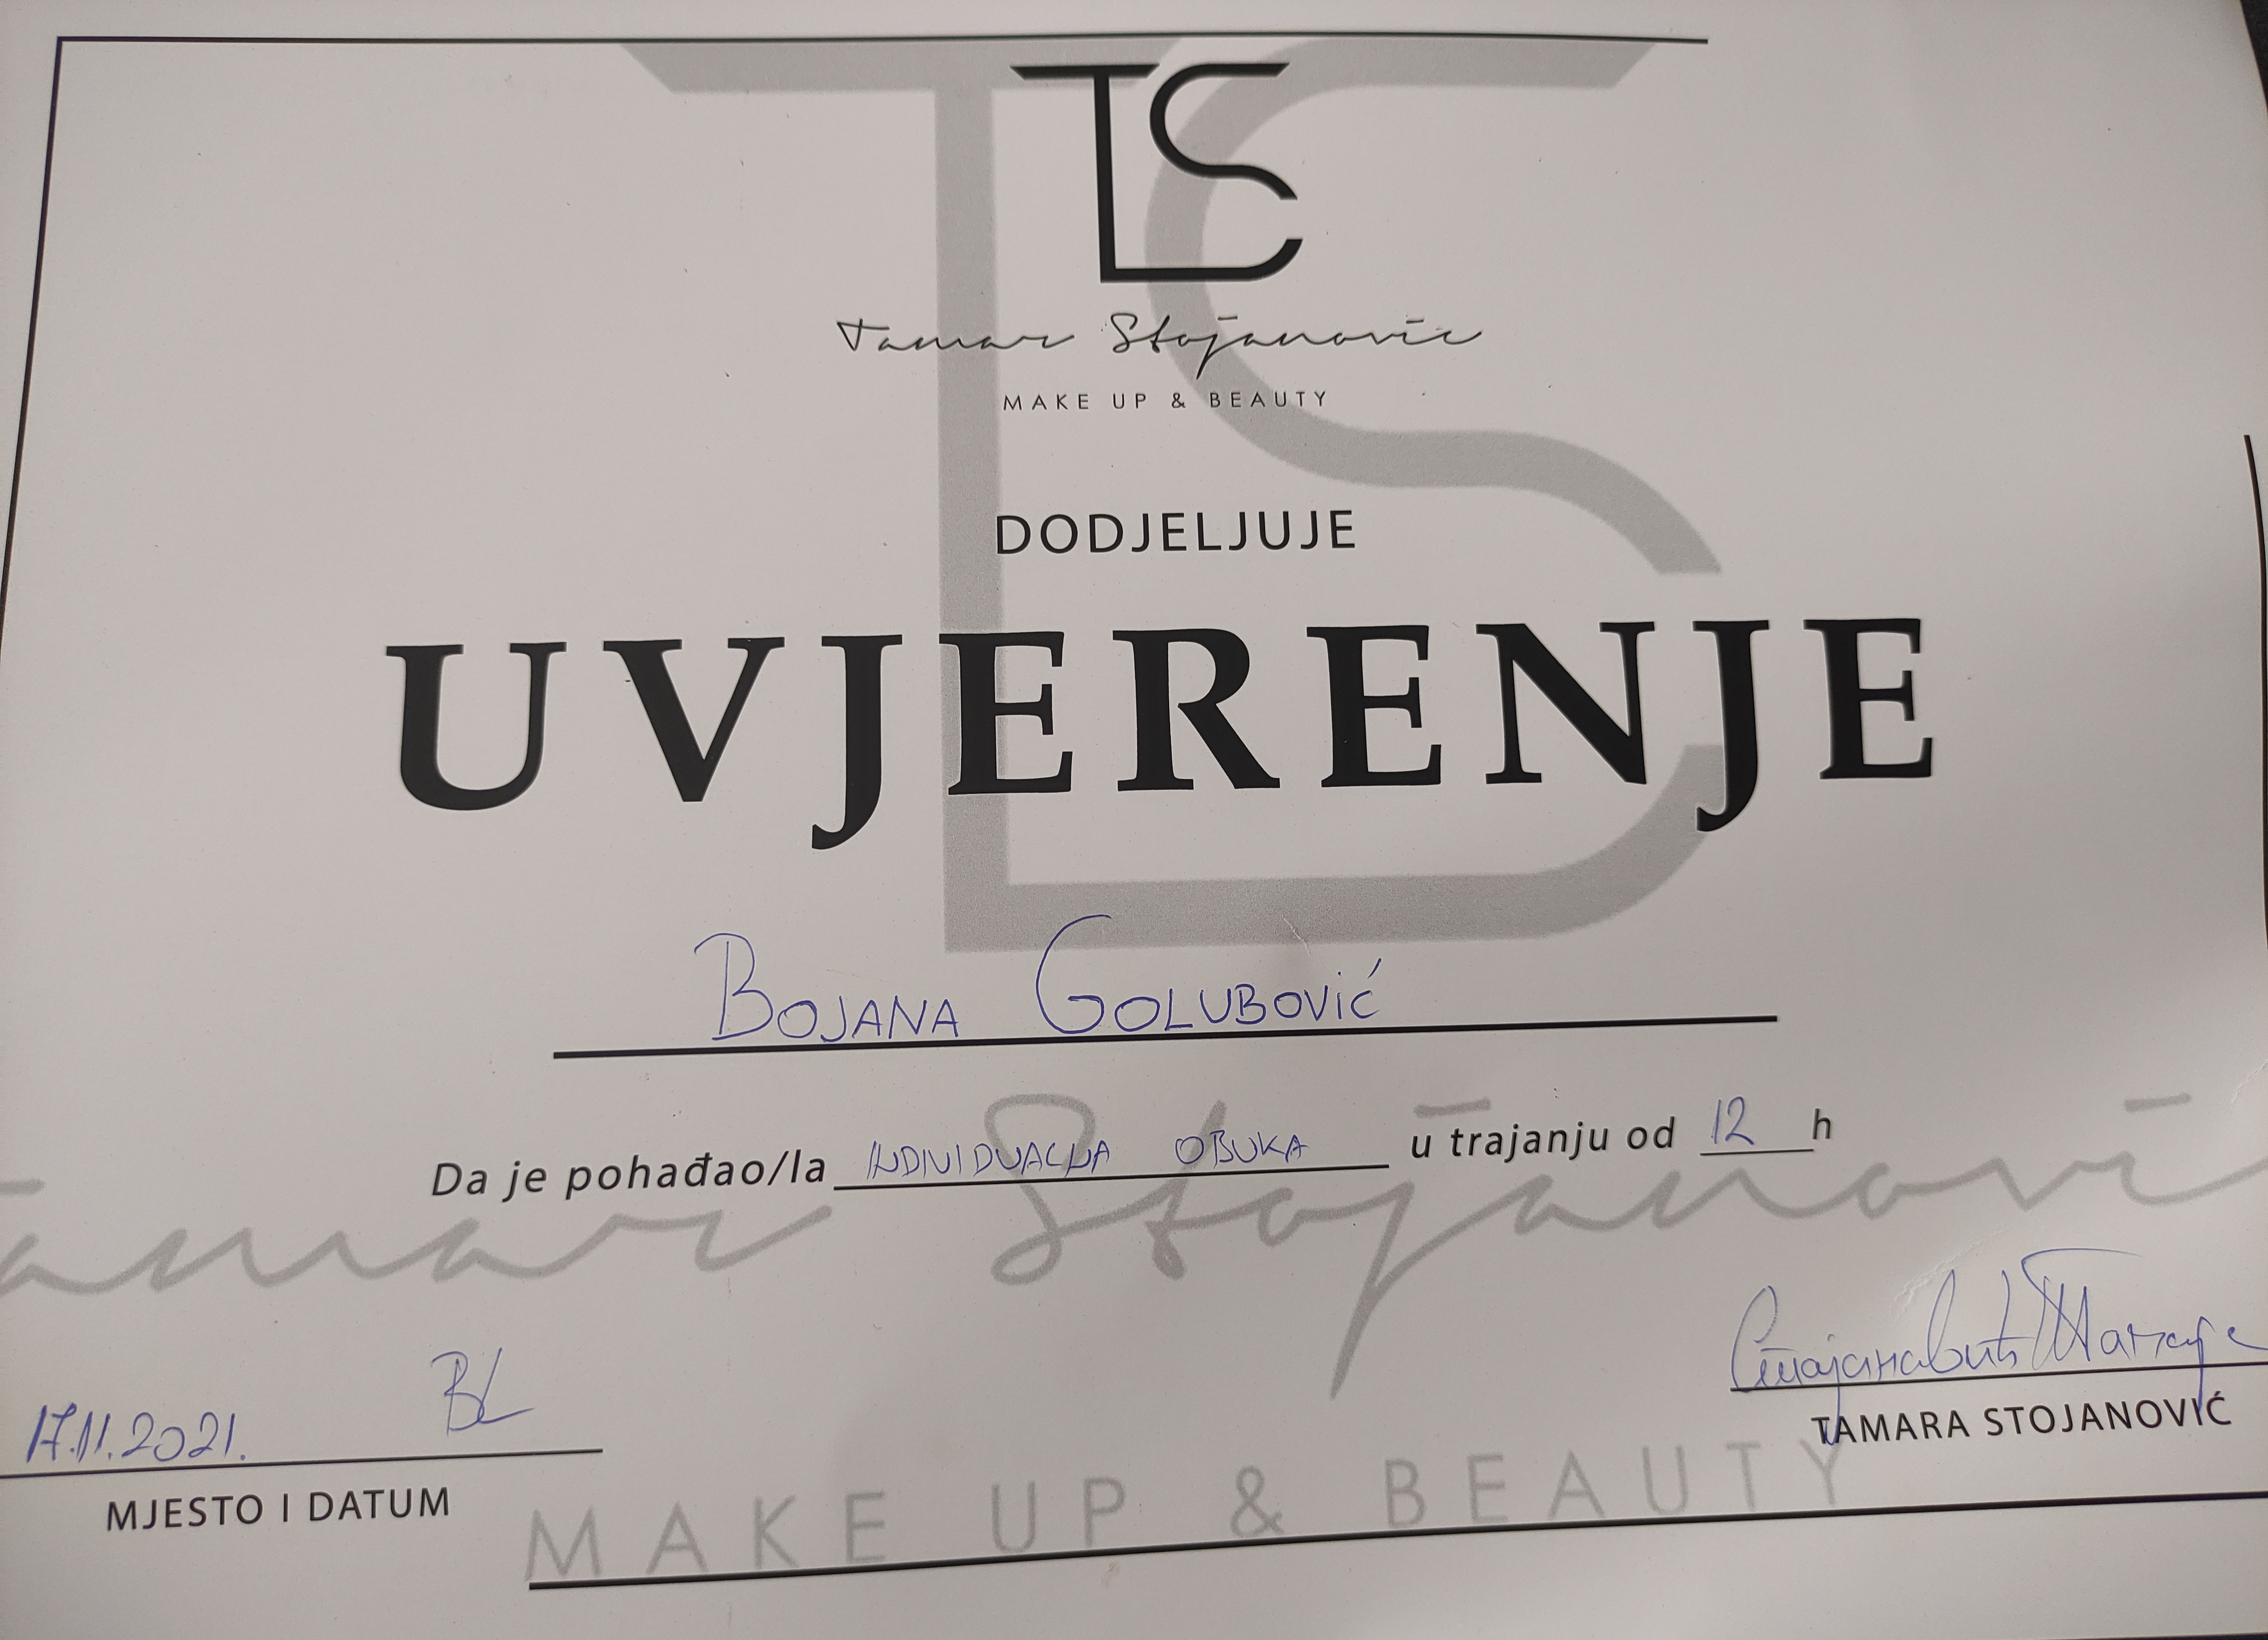 TS
Tamar Stojanovic
MAKE UP & BEAUTY
DODJELJUJE
UVJERENJE
BOJANA GOLUBOVIĆ
Da je pohađao/la INDIVIDUALNA OBUKA u trajanju od 12 h
Tamar Stojanovi
17.11.2021. BL
Стојановић Тамара
MJESTO I DATUM
TAMARA STOJANOVIĆ
MAKE UP & BEAUTY